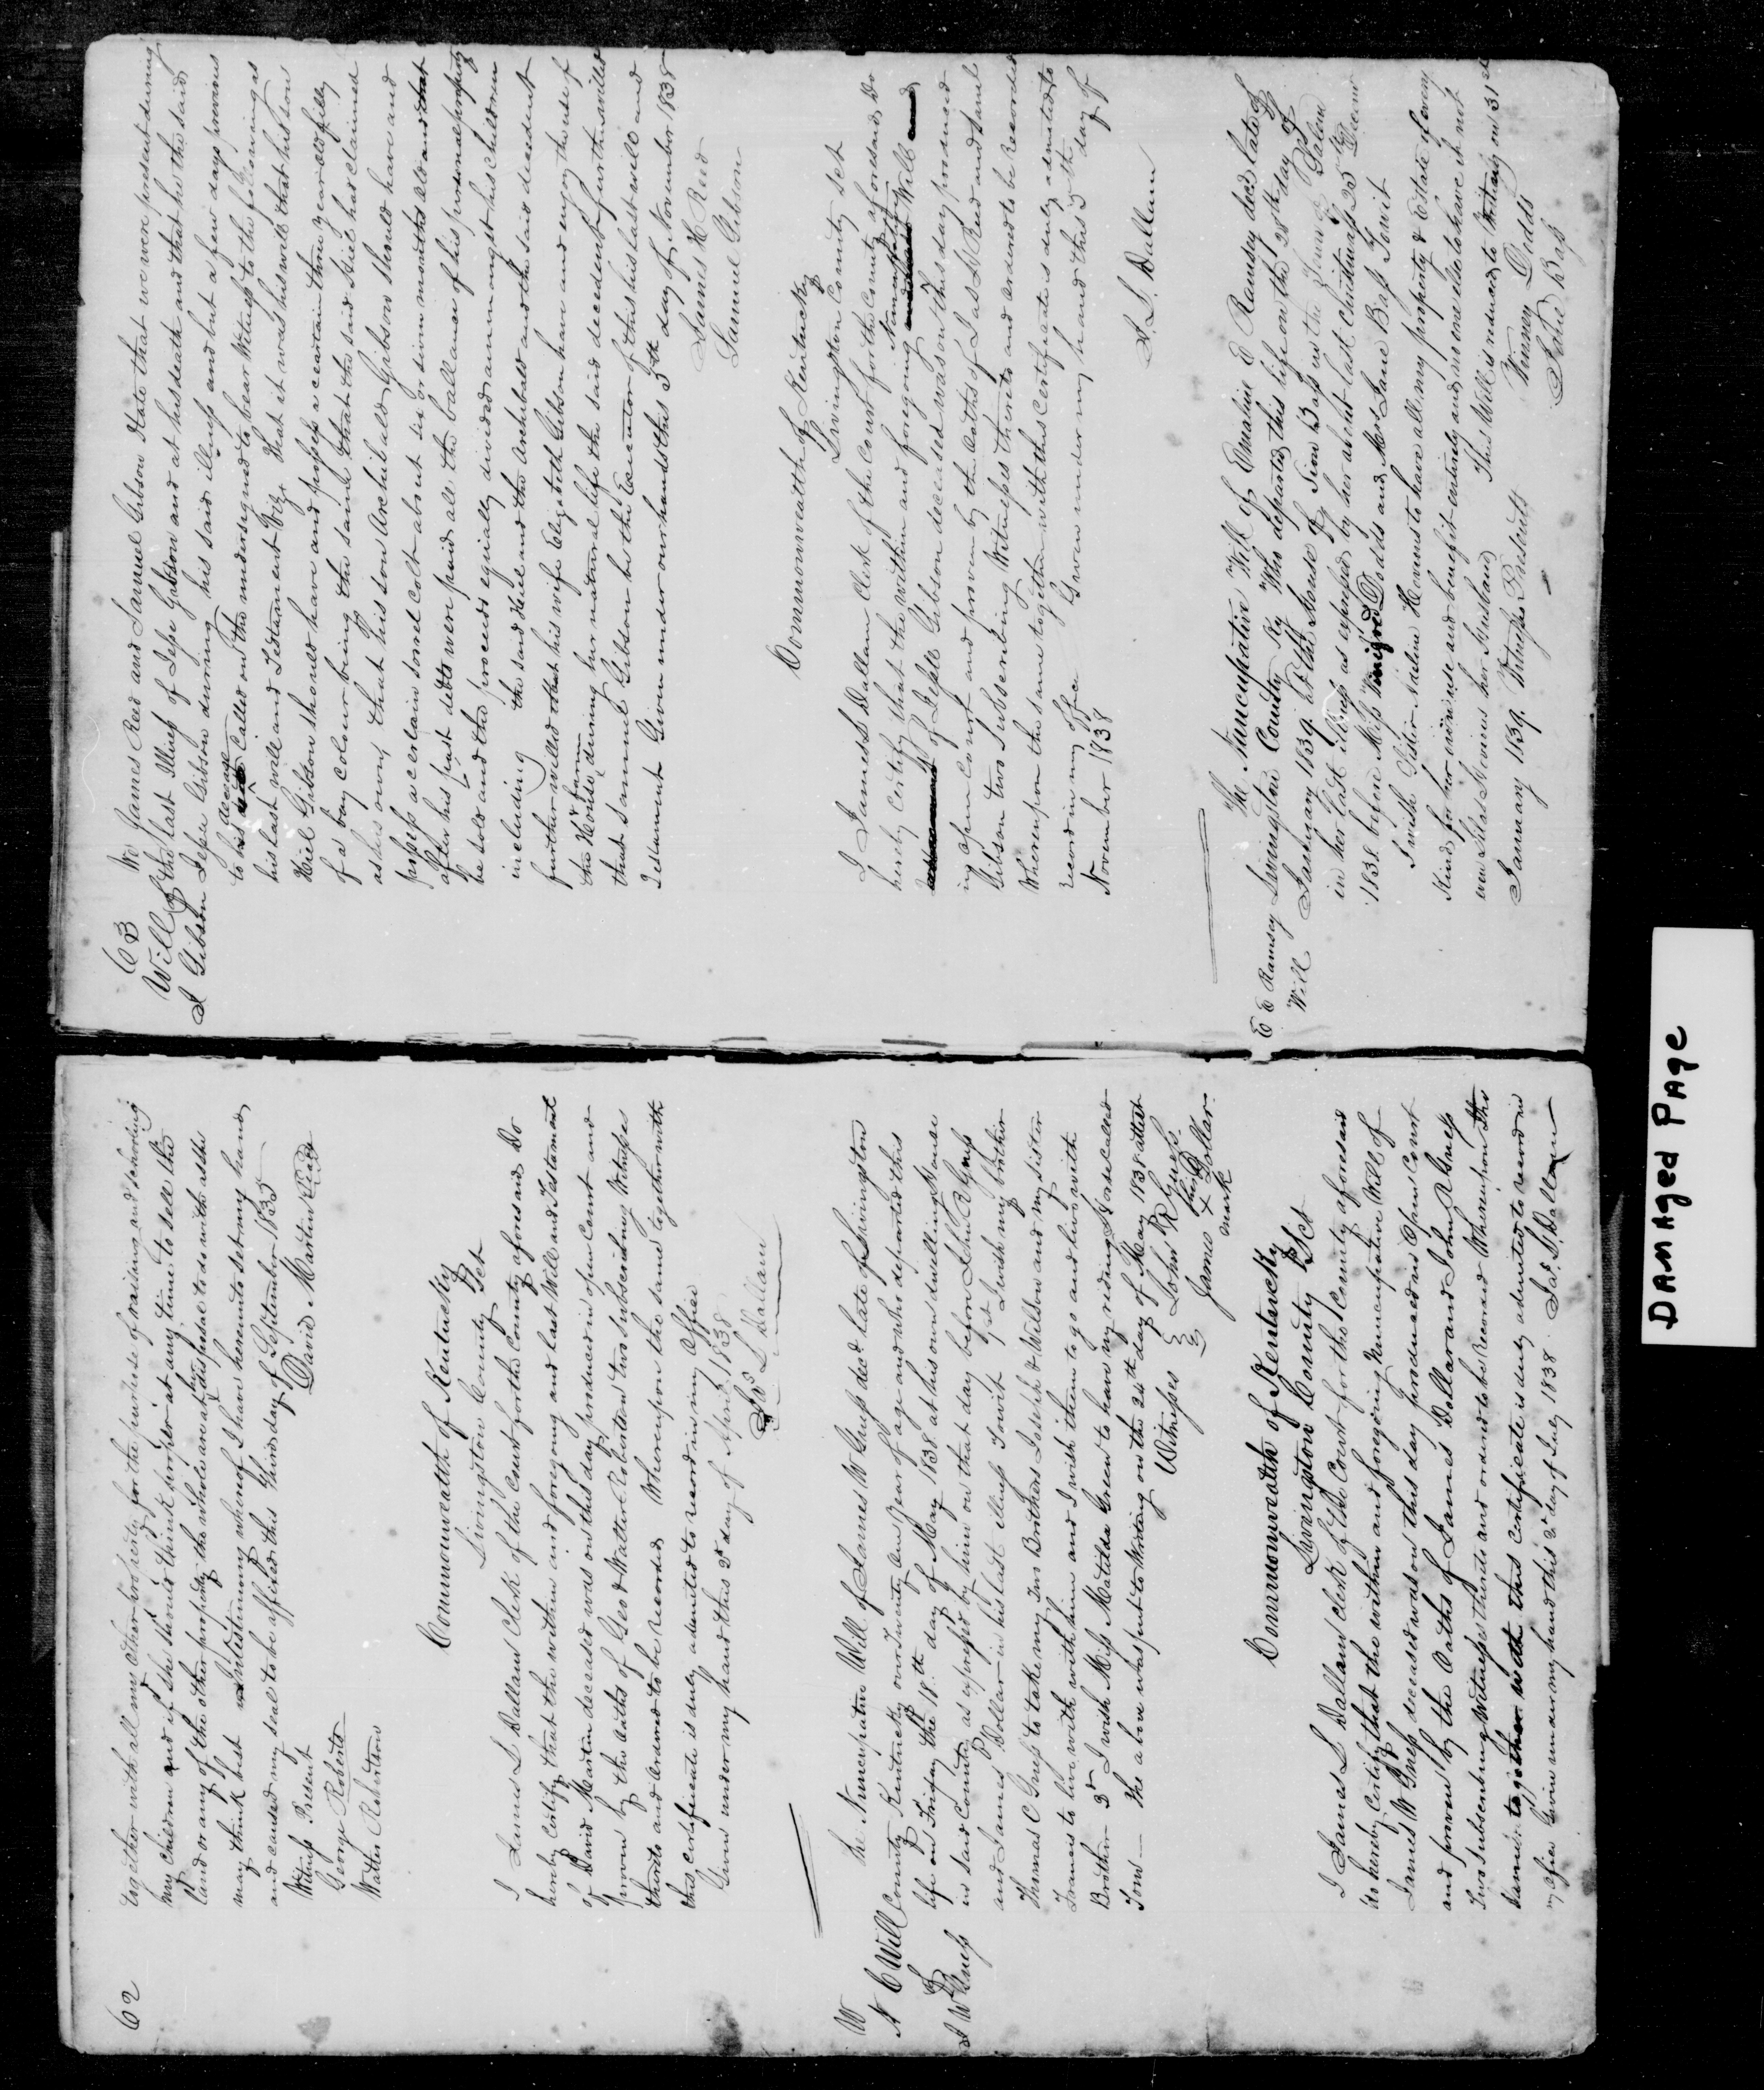 62
together with all my other property for the purpose of raising and schooling
my children and if she should think proper at any time to sell the
land or any of the other property the whole are at her disposal to do with as she
may think best In testimony whereof I have hereunto set my hand
and caused my seal to be affixed this Third day of September 1835
Witness Present David Martin Seal
George Roberts
Walter Robertson
Commonweath of Kentucky
Livingston County Sct
I James L Dallam Clerk of the Court for the County aforesaid Do
hereby Certify that the within and foregoing and last Will and Testament
of David Martin deceased was on this day produced in open Court and
proven by the oaths of Geo & Walter Robertson two subscribing Witnesses
thereto and ordered to be recorded Whereupon the same together with
this certificate is duly admited to record in my Office
Given under my hand this 2d day of April 1838
Jas L Dallam
W
N C Will
of
J W Guess
The Nuncupative Will of James W Guess decd late of Livingston
County Kentucky over Twenty one Year of age and who departed this
life on Friday the 18th day of May 1838 at his own dwelling House
in said County as expressed by him on that day before John R Guess
and James Dollar in his last illness Towit 1st I wish my brother
Thomas C Guess to take my Two Brothers Joseph & Wilson and my sister
Frances to live with with him and I wish them to go and live with
Brother 2d I wish Miss Matilda Green to have my riding Horse called
Tom — The above was put to Writing on the 24th day of May 1838 attest
Witnesses John R Guess
his
James + Dollar
mark
Commonweath of Kentucky
Livingston County Sct
I James L Dallam clerk of the Court for the County aforesaid
do hereby Certify that the within and foregoing Nuncupative Will of
James W Guess deceased was on this day produced in Open Court
and proven by the Oaths of James Dollar and John R Guess
Two subscribing Witnesses thereto and ordered to be Recorded Whereupon the
same together with this certificate is duly admited to record in
my office Given under my hand this 2d day of July 1838 Jas L Dallam
63
Will of
J Gibson
We James Reed and Samuel Gibson State that we were present during
the last Illness of Jesse Gibson and at his death and that he the said
Jesse Gibson during his said illness and but a few days previous
to his decease Called on the undersigned to bear Witness to the following as
his last will and Testament Viz. That it was his will that his son
Hiel Gibson should have and possess a certain three year old filly
of a bay colour being the same that the said Hiel has claimed
as his own, that his son Archibald Gibson should have and
possess a certain sorrel colt about six or seven months old and that
after his just debts were paid all the ballance of his personal property
be sold and the proceeds equally divided amongst his children
including the said Hiel and the Archibald and the said decedent
further willed that his wife Elizabeth Gibson have and enjoy the use of
the House & farm during her natural life the said decedent further willed
that Samuel Gibson be the Executor of this his last will and
Testament Given under our hands this 5th day of November 1838
James H Reed
Samuel Gibson
Commonweath of Kentucky
Livingston County Sct
I James L Dallam Clerk of the Court for the County aforesaid, Do
hereby Certify that the within and foregoing Nuncupative Will
of Jesse Gibson deceased was on this day produced
in open Court and proven by the Oaths of Jas H Reed and Saml
Gibson two subscribing Witnesses thereto and ordered to be recorded
Whereupon the same together with this certificate is duly admited to
record in my office Given under my hand this 5th day of
November 1838
J. L. Dallam
E E Ramsey
Will
The Nuncupative Will of Emaline E Ramsey decd late of
Livingston County Ky Who departed this life on the 28th day of
January 1839. at the House of Sion Bass in the Town of Salem
in her last illness as expressed by her about last Christmas 25th Decemr
1838 before Miss Vinsey Dodds and Mrs Jane Bass Towit
I wish Sister Nalene Hevins to have all my property & Estate of every
Kind for her own use and benefit entirely and no one else to have it not
even Silas Hevins her husband This Will is reduced to Writing on 31st
January 1839. Witnesses Present Vinsey Dodds
Jane Bass
DAMAged PAge